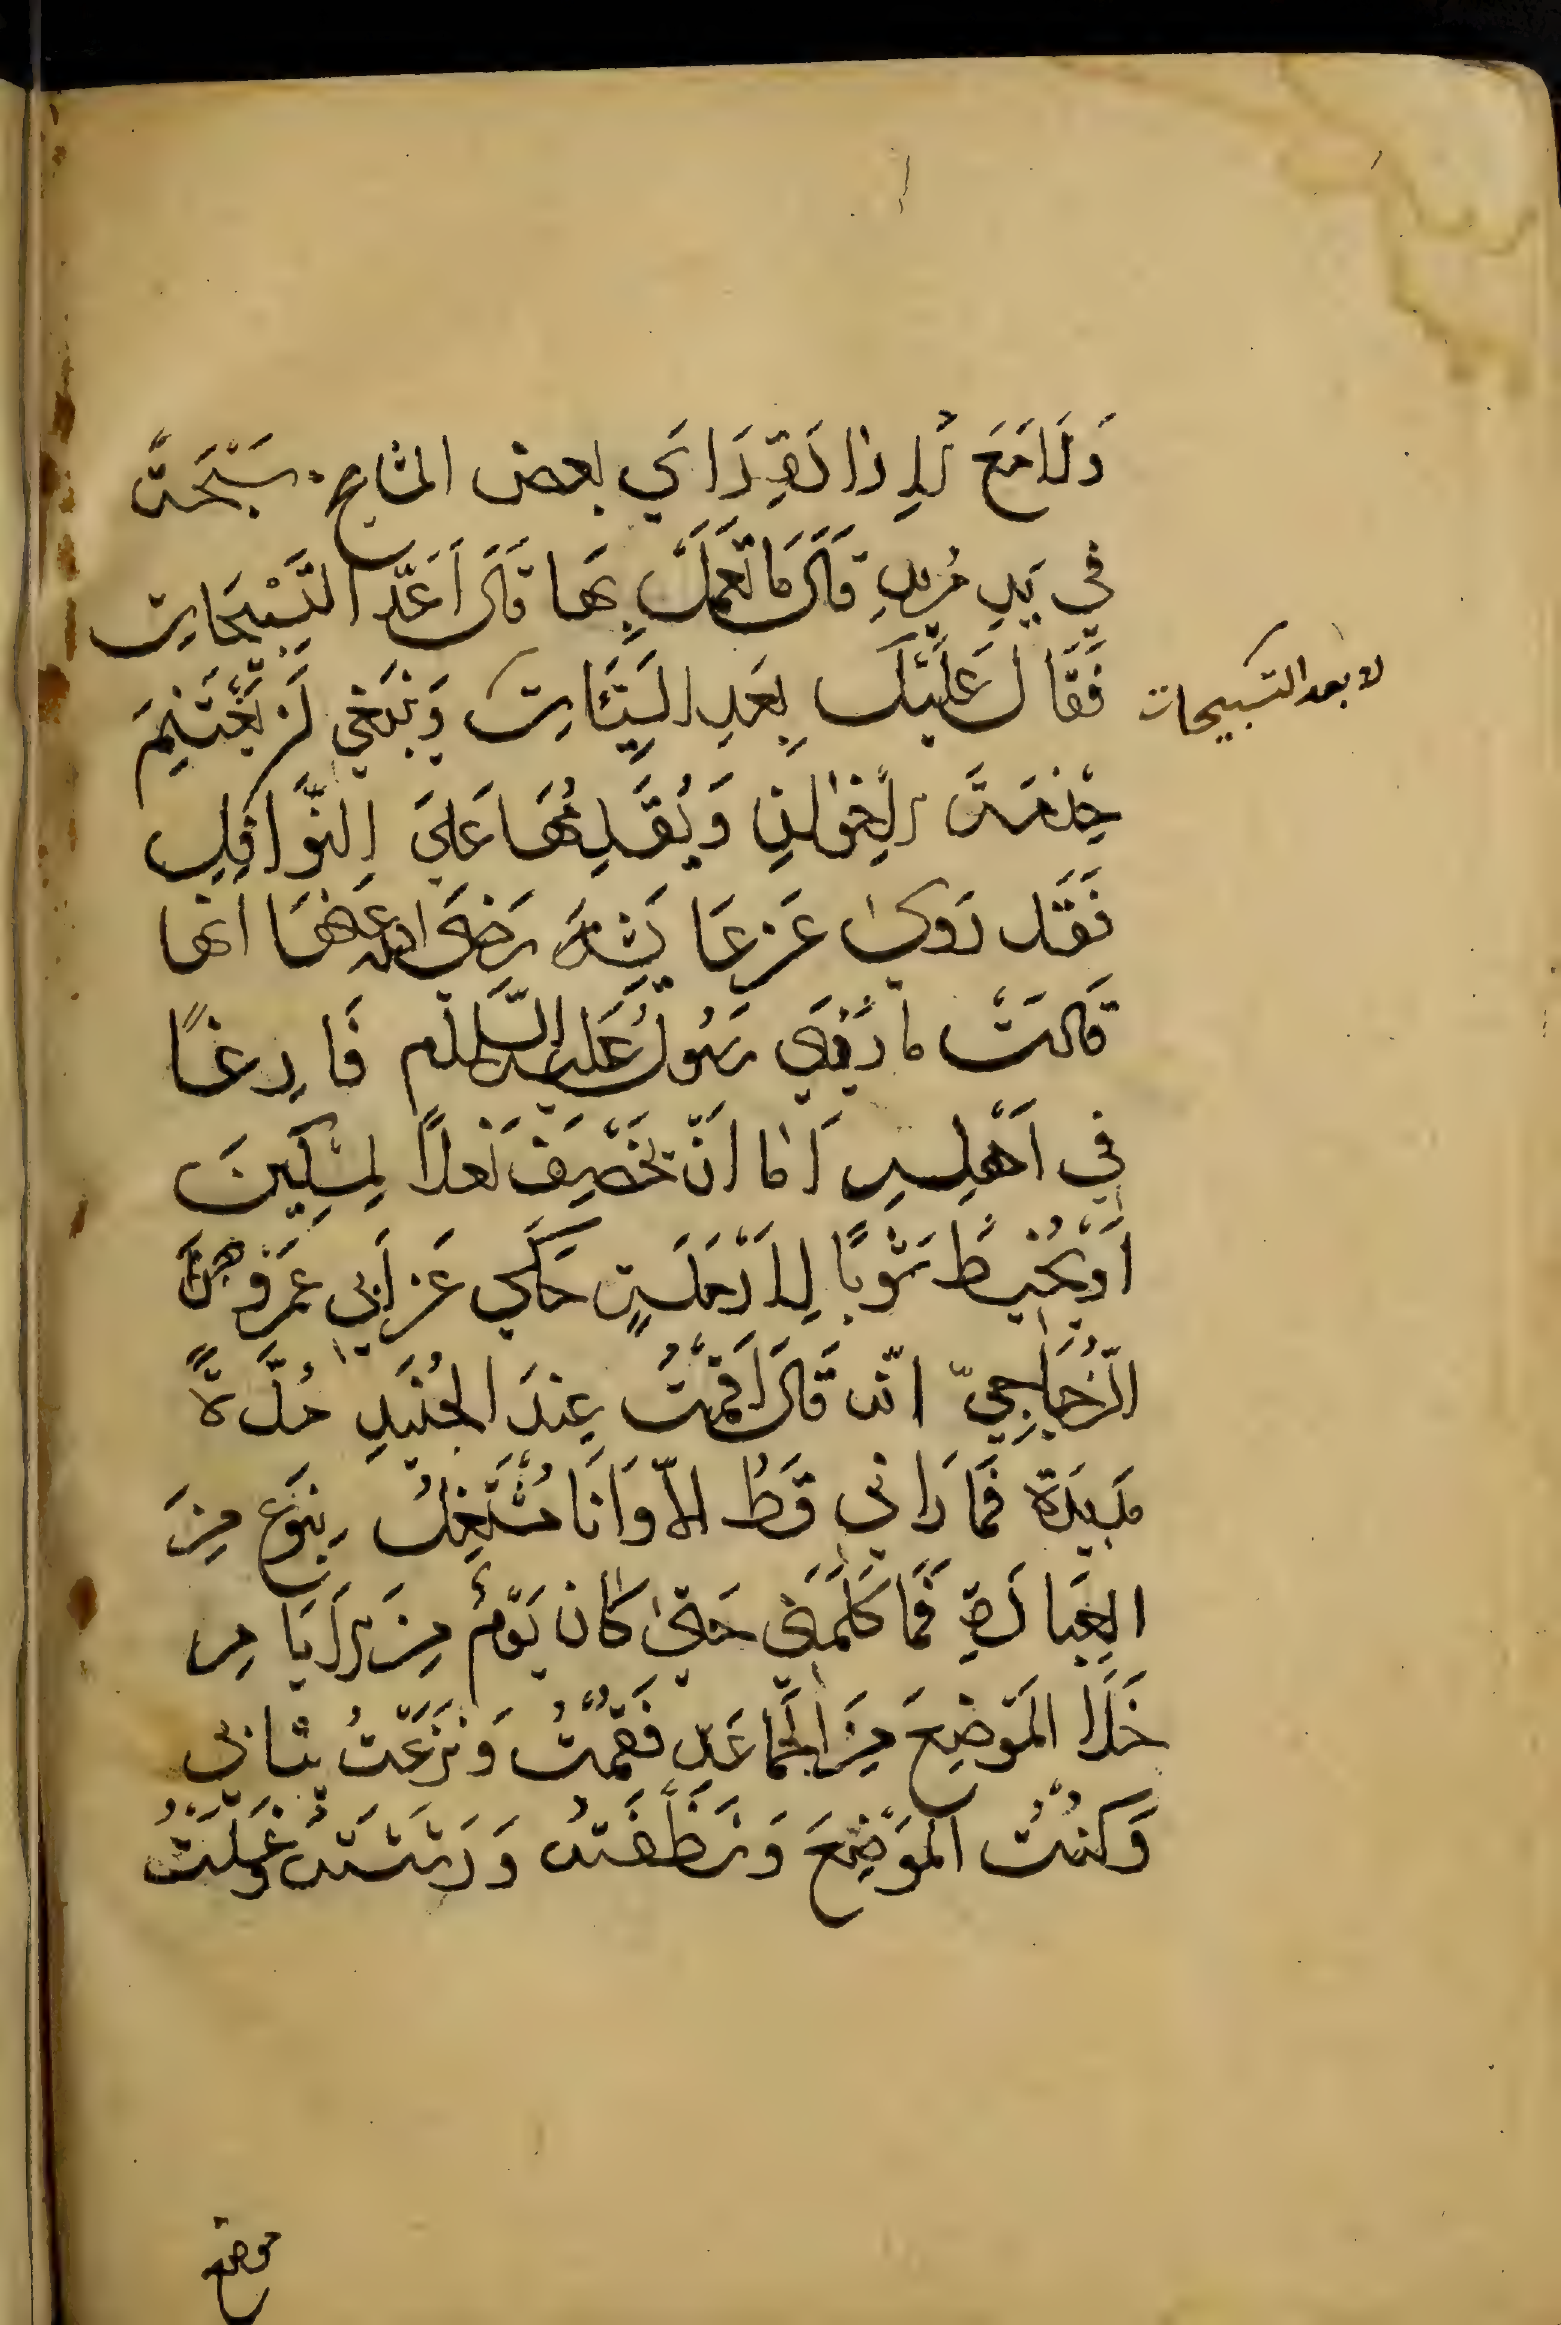 وَلَا مَعَ الإرادَةِ رَاى بعض المشايخ سَبْحَةً
في يَدِ مُرِيدِ قَالَ مَا تَعْمَلُ بِهَا قَالَ أَعَدُّ التَّسْبِيحَاتِ
فَقَالَ عَلَيْكَ بِعَدِ السَّيِّئَاتِ وَيَنبَغِي اَن يَغْتَنِمَ
لا بعد التسبيحات
خِدْمَةَ الإِخْوَانِ وَيُقَدِّمُهَا عَلَى النَّوَافِلِ
فَقَد رَوى عَن عَايِشَةَ رَضِيَ الله عَنْهَا انها
قَالَتْ مَا رُؤيَ رَسُولُ عَلَيهِ السَّلَام فَارِغًا
في اَهْلِهِ اَمّا انّ يَخْصِفَ نَعلًا لِمِسْكِينَ
اَوْ يُخِيطَ ثَوْبًا لِاَرْمَلَةٍ حَكَي عَن اَبي عَمَرو
الزُّجَاجِيّ انّه قَالَ اَقَمْتُ عِندَ الجُنَيدِ مُدَّةً
مَدِيدَة فَمَا رَاني قَطُ الاّ وَاَنَا مُشْتَغِلُ بِنَوعِ مِنَ
العِبَادَةِ فَمَا كَلَّمَنِي حَتّىٰ كَان يَوْمٌ مِنَ الاَيَامِ
خَلَا المَوْضِعَ مِنَ الجَمَاعَةِ فَقُمْتُ وَنَزَعْتُ ثيابي
وَكَنَسْتُ المَوْضِعَ وَنَظَّفْتُه وَرَشَشْتُه وَغَسَلْتُ
موضع